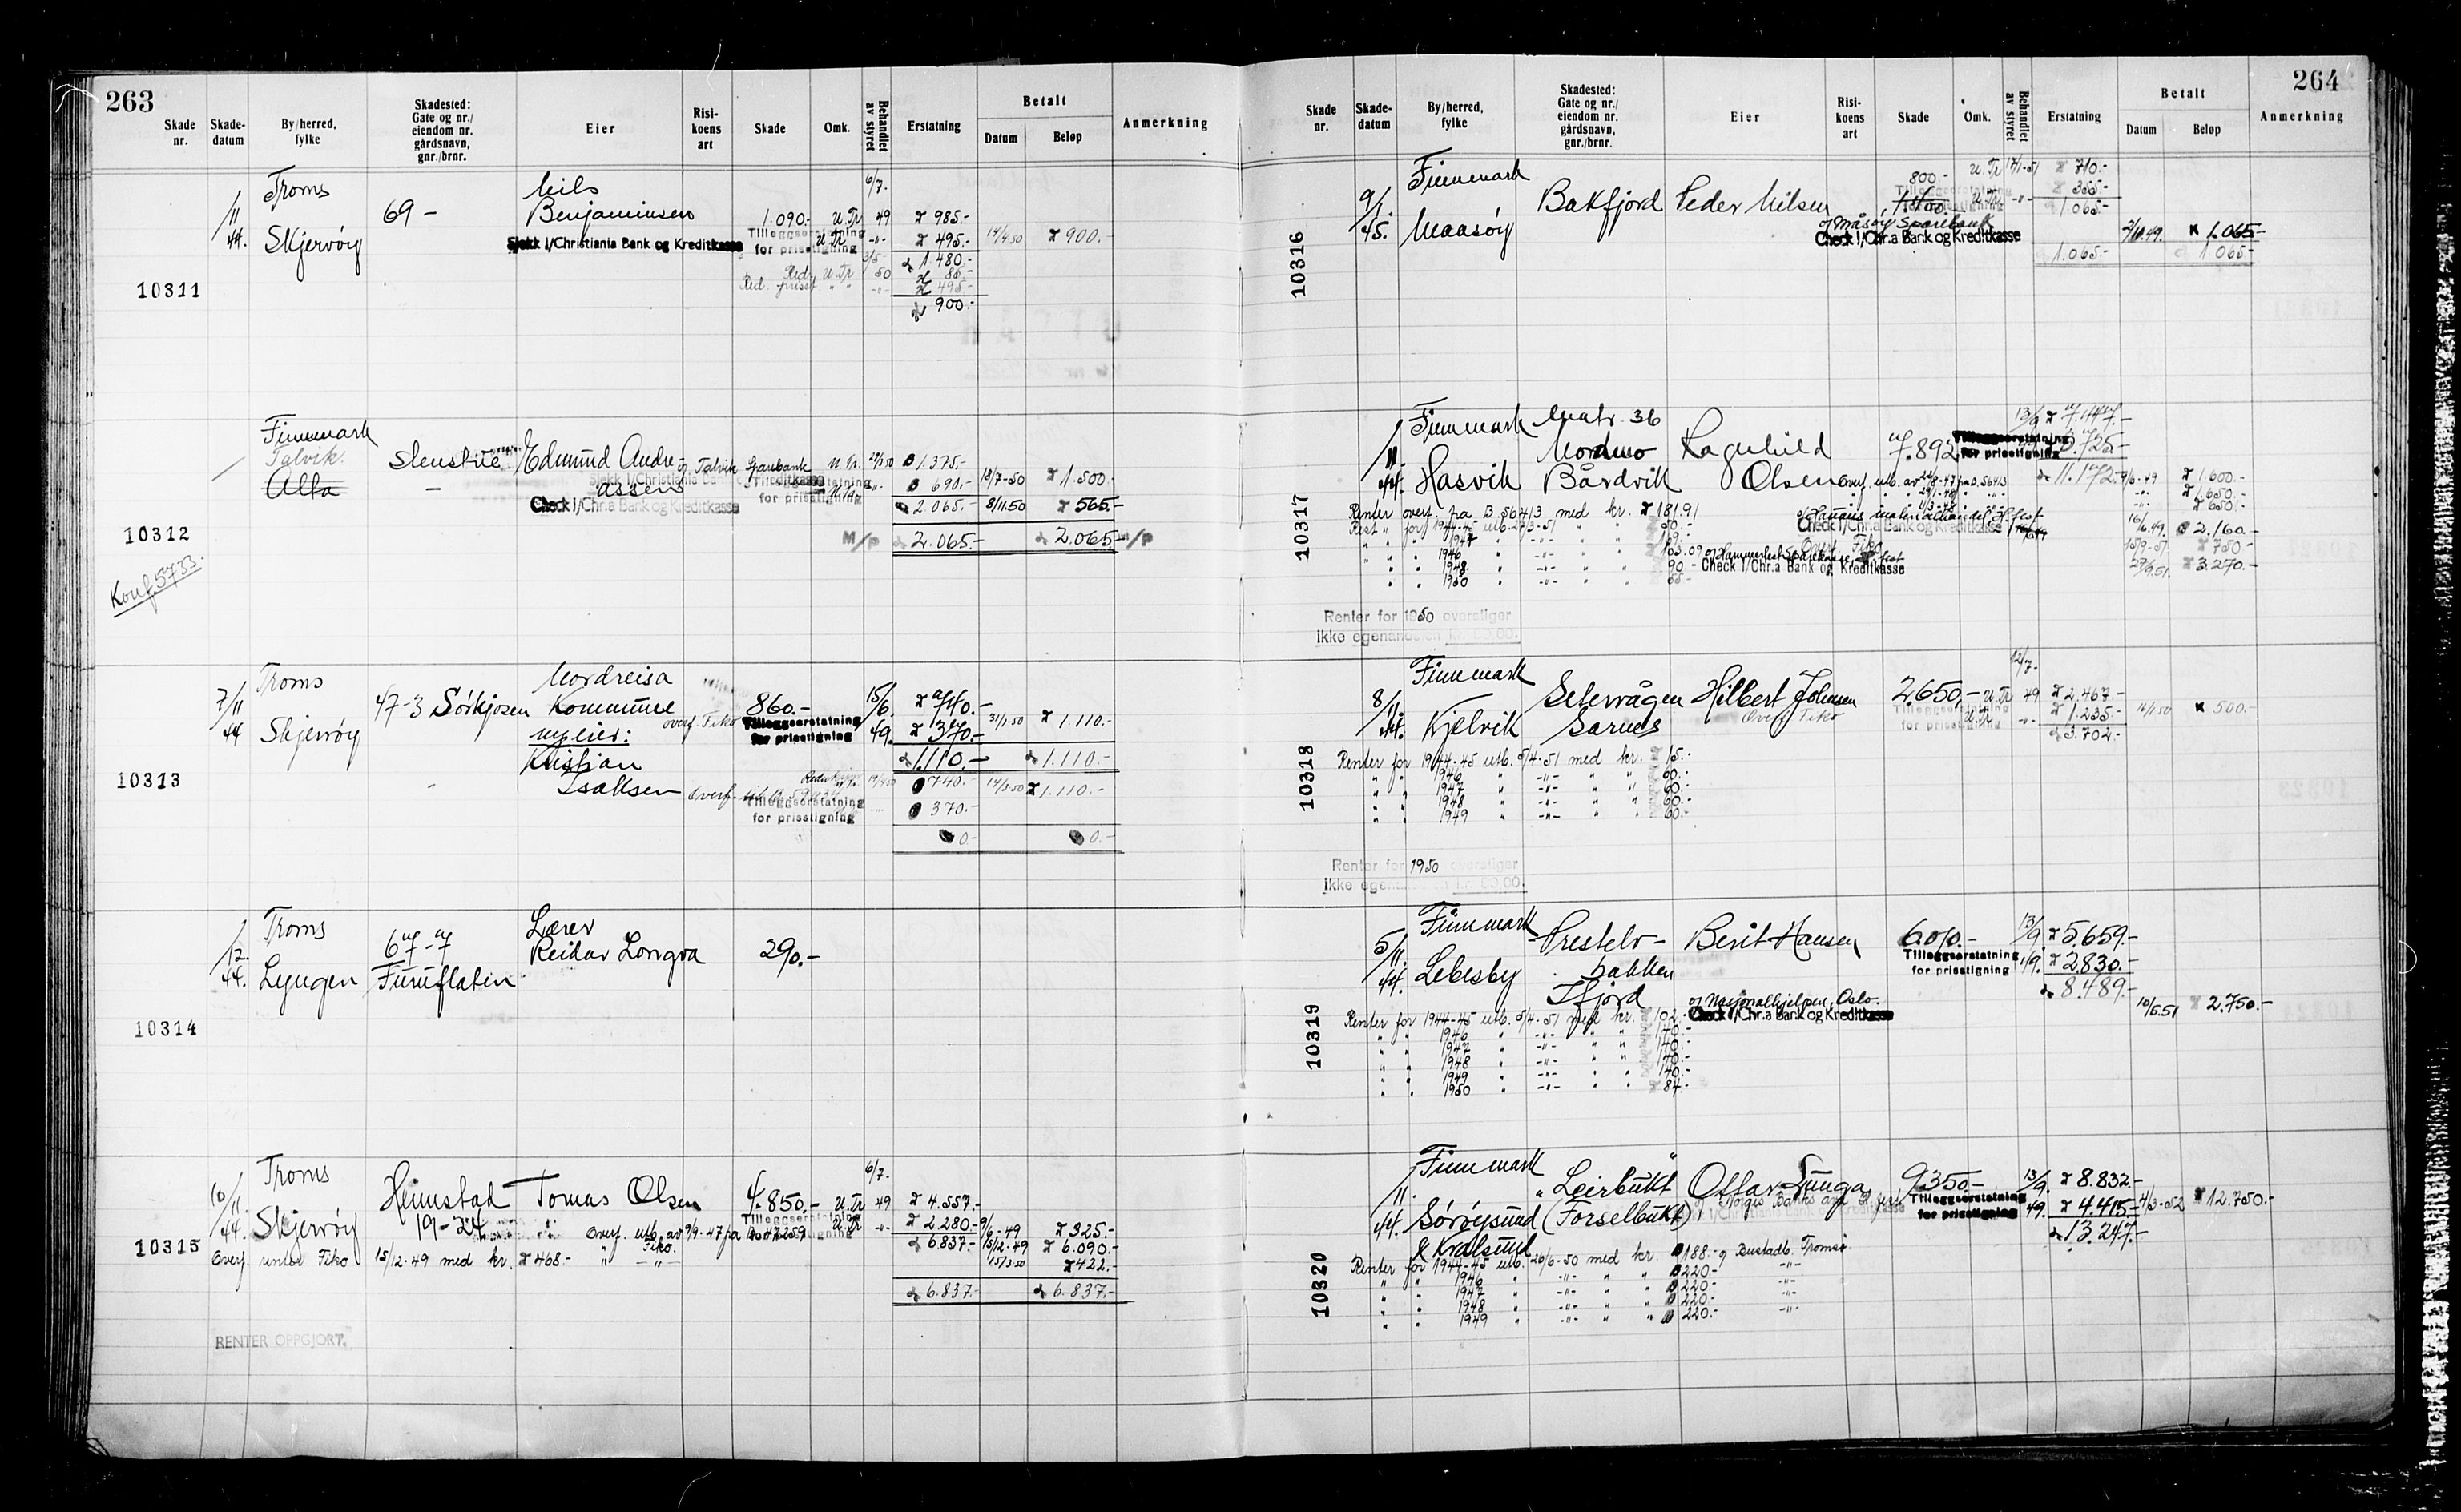 263
Skade nr.
Skade-datum
By/herred, fylke
Skadested: Gate og nr./ eiendom nr. gårdsnavn, gnr./brnr.
Eier
Risi-koens art
Skade
Omk.
Behandlet av styret
Erstatning
Betalt
Datum
Beløp
Anmerkning
10311
1/11 44.
Troms
Skjervøy
69 -
Nils
Benjaminsen
Sjekk 1/Christiania Bank og Kreditkasse
1.090.- U.Tr 6/7- 49 985.-
Tilleggserstatning for prisstigning U.Tr -"- 495.- 14/4.50 900.-
1.480.-
Red. U.Tr 50 85.-
Red. prisst " " -"- 495.-
900.-
10312
Konf. 5733.
Finnmark
Talvik.
Alta
Edmund Andre-
assen
Talvik Sparebank
Check 1/Chr.a Bank og Kreditkasse
1.375.-
690.- 18/7-50 1.500.-
2.065.- 8/11.50 565.-
M/P 2.065.- 2.065.- M/P
10313
7/11 44
Troms
Skjervøy
47-3 Sørkjosen
Nordreisa
Kommune
ny eier:
Kristian
Isaksen
overf. Fiko
860.- 15/6. 49. 740.-
Tilleggserstatning for prisstigning 370.- 31/1.50 1.110.-
1.110.- 1.110.-
740.- 14/3.50 1.110.-
Tilleggserstatning for prisstigning 370.-
0.- 0.-
10314
1/12. 44.
Troms
Lyngen
67-7
Furuflaten
Lærer
Reidar Longva
290.-
10315
10/11. 44.
Troms
Skjervøy
Heimstad
19-24
Tomas Olsen
4.850.- U.Tr 6/7- 49 4.557.-
Tilleggserstatning for prisstigning U.Tr -"- 2.280.- 9/6-49 325.-
Overf. utb. av 9/9-47 fra B.47259
6.837.- 15/12-49 6.090.-
15/3.50 422.-
Overf. renter Fiko 15/12-49 med kr. 468.- " -"-
6.837.- 6.837.-
RENTER OPPGJORT.
264
Skade nr.
Skade-datum
By/herred, fylke
Skadested: Gate og nr./ eiendom nr. gårdsnavn, gnr./brnr.
Eier
Risi-koens art
Skade
Omk.
Behandlet av styret
Erstatning
Betalt
Datum
Beløp
Anmerkning
10316
9/1 45.
Finnmark
Maasøy
Bakfjord
Peder Nilsen
Måsøy Sparebank
Check 1/Chr.a Bank og Kreditkasse
800.- U.Tr 17/1-51 710.-
355.-
1.065.-
1.065.-
1.065.- 1.065.-
10317
1/11. 44.
Finnmark
Hasvik
Matr. 36
Nordmo
Bårdvik
Ragnhild
Olsen
7.892.-
Tilleggserstatning for prisstigning
13/9 7.447.-
3.725.-
11.172.-
9/6-49 1.600.-
-"- 1.650.-
-"- 650.-
16/6.49. 2.160.-
750.-
3.270.-
Renter overf. fra B.56413 med kr. 181.91
Rest " for 1944-45 utb. 27/3-51 " " 90.-
" " 1947 " -"- " "
" " 1946 " -"- " " 103.09 Hammerfest Sparekasse, H.fest
" " 1948 " -"- " " 90.- Check 1/Chr.a Bank og Kreditkasse
" " 1950 " -"- " "
Renter for 1950 overstiger
ikke egenandelen kr. 50,00.
10318
8/11. 44.
Finnmark
Kjelvik
Setervågen
Sarnes
Hilbert Johnsen
Overf. Fiko
2.650.- U.Tr 12/7- 49 2.467.-
Tilleggserstatning for prisstigning U.Tr -"- 1.235.- 500.-
3.702.-
Renter for 1944-45 utb. 5/4-51 med kr. 15.-
" " 1946 " -"- " " 60.-
" " 1947 " -"- " " 60.-
" " 1948 " -"- " " 60.-
" " 1949 " -"- " " 60.-
Renter for 1950 overstiger
ikke egenandelen kr. 50,00.
10319
5/11. 44.
Finnmark
Lebesby
Prestelv-
bakken
Ifjord
Berit Hansen
Nasjonalhjelpen, Oslo.
Check 1/Chr.a Bank og Kreditkasse
6.010.- 13/9. 5.659.-
Tilleggserstatning for prisstigning 2.830.-
8.489.-
10/5.51 2.750.-
Renter for 1944-45 utb. 5/4-51 med kr. 102.-
" " 1946 " -"- " " 140.-
" " 1947 " -"- " " 140.-
" " 1948 " -"- " " 140.-
" " 1949 " -"- " " 140.-
" " 1950 " -"- " " 84.-
10320
1/11. 44.
Finnmark
Sørøysund
& Kvalsund
Leirbukt
(Forselbukt)
Ottar Lunga
9.350.- 13/9. 49. 8.832.-
Tilleggserstatning for prisstigning 4.415.- 4/3-52 12.750.-
13.247.-
Renter for 1944-45 utb. 26/6-50 med kr. 188.- Bustadb. Tromsø
" " 1946 " -"- " " 220.- -"-
" " 1947 " -"- " " 220.- -"-
" " 1948 " -"- " " 220.- -"-
" " 1949 " -"- " " 220.- -"-